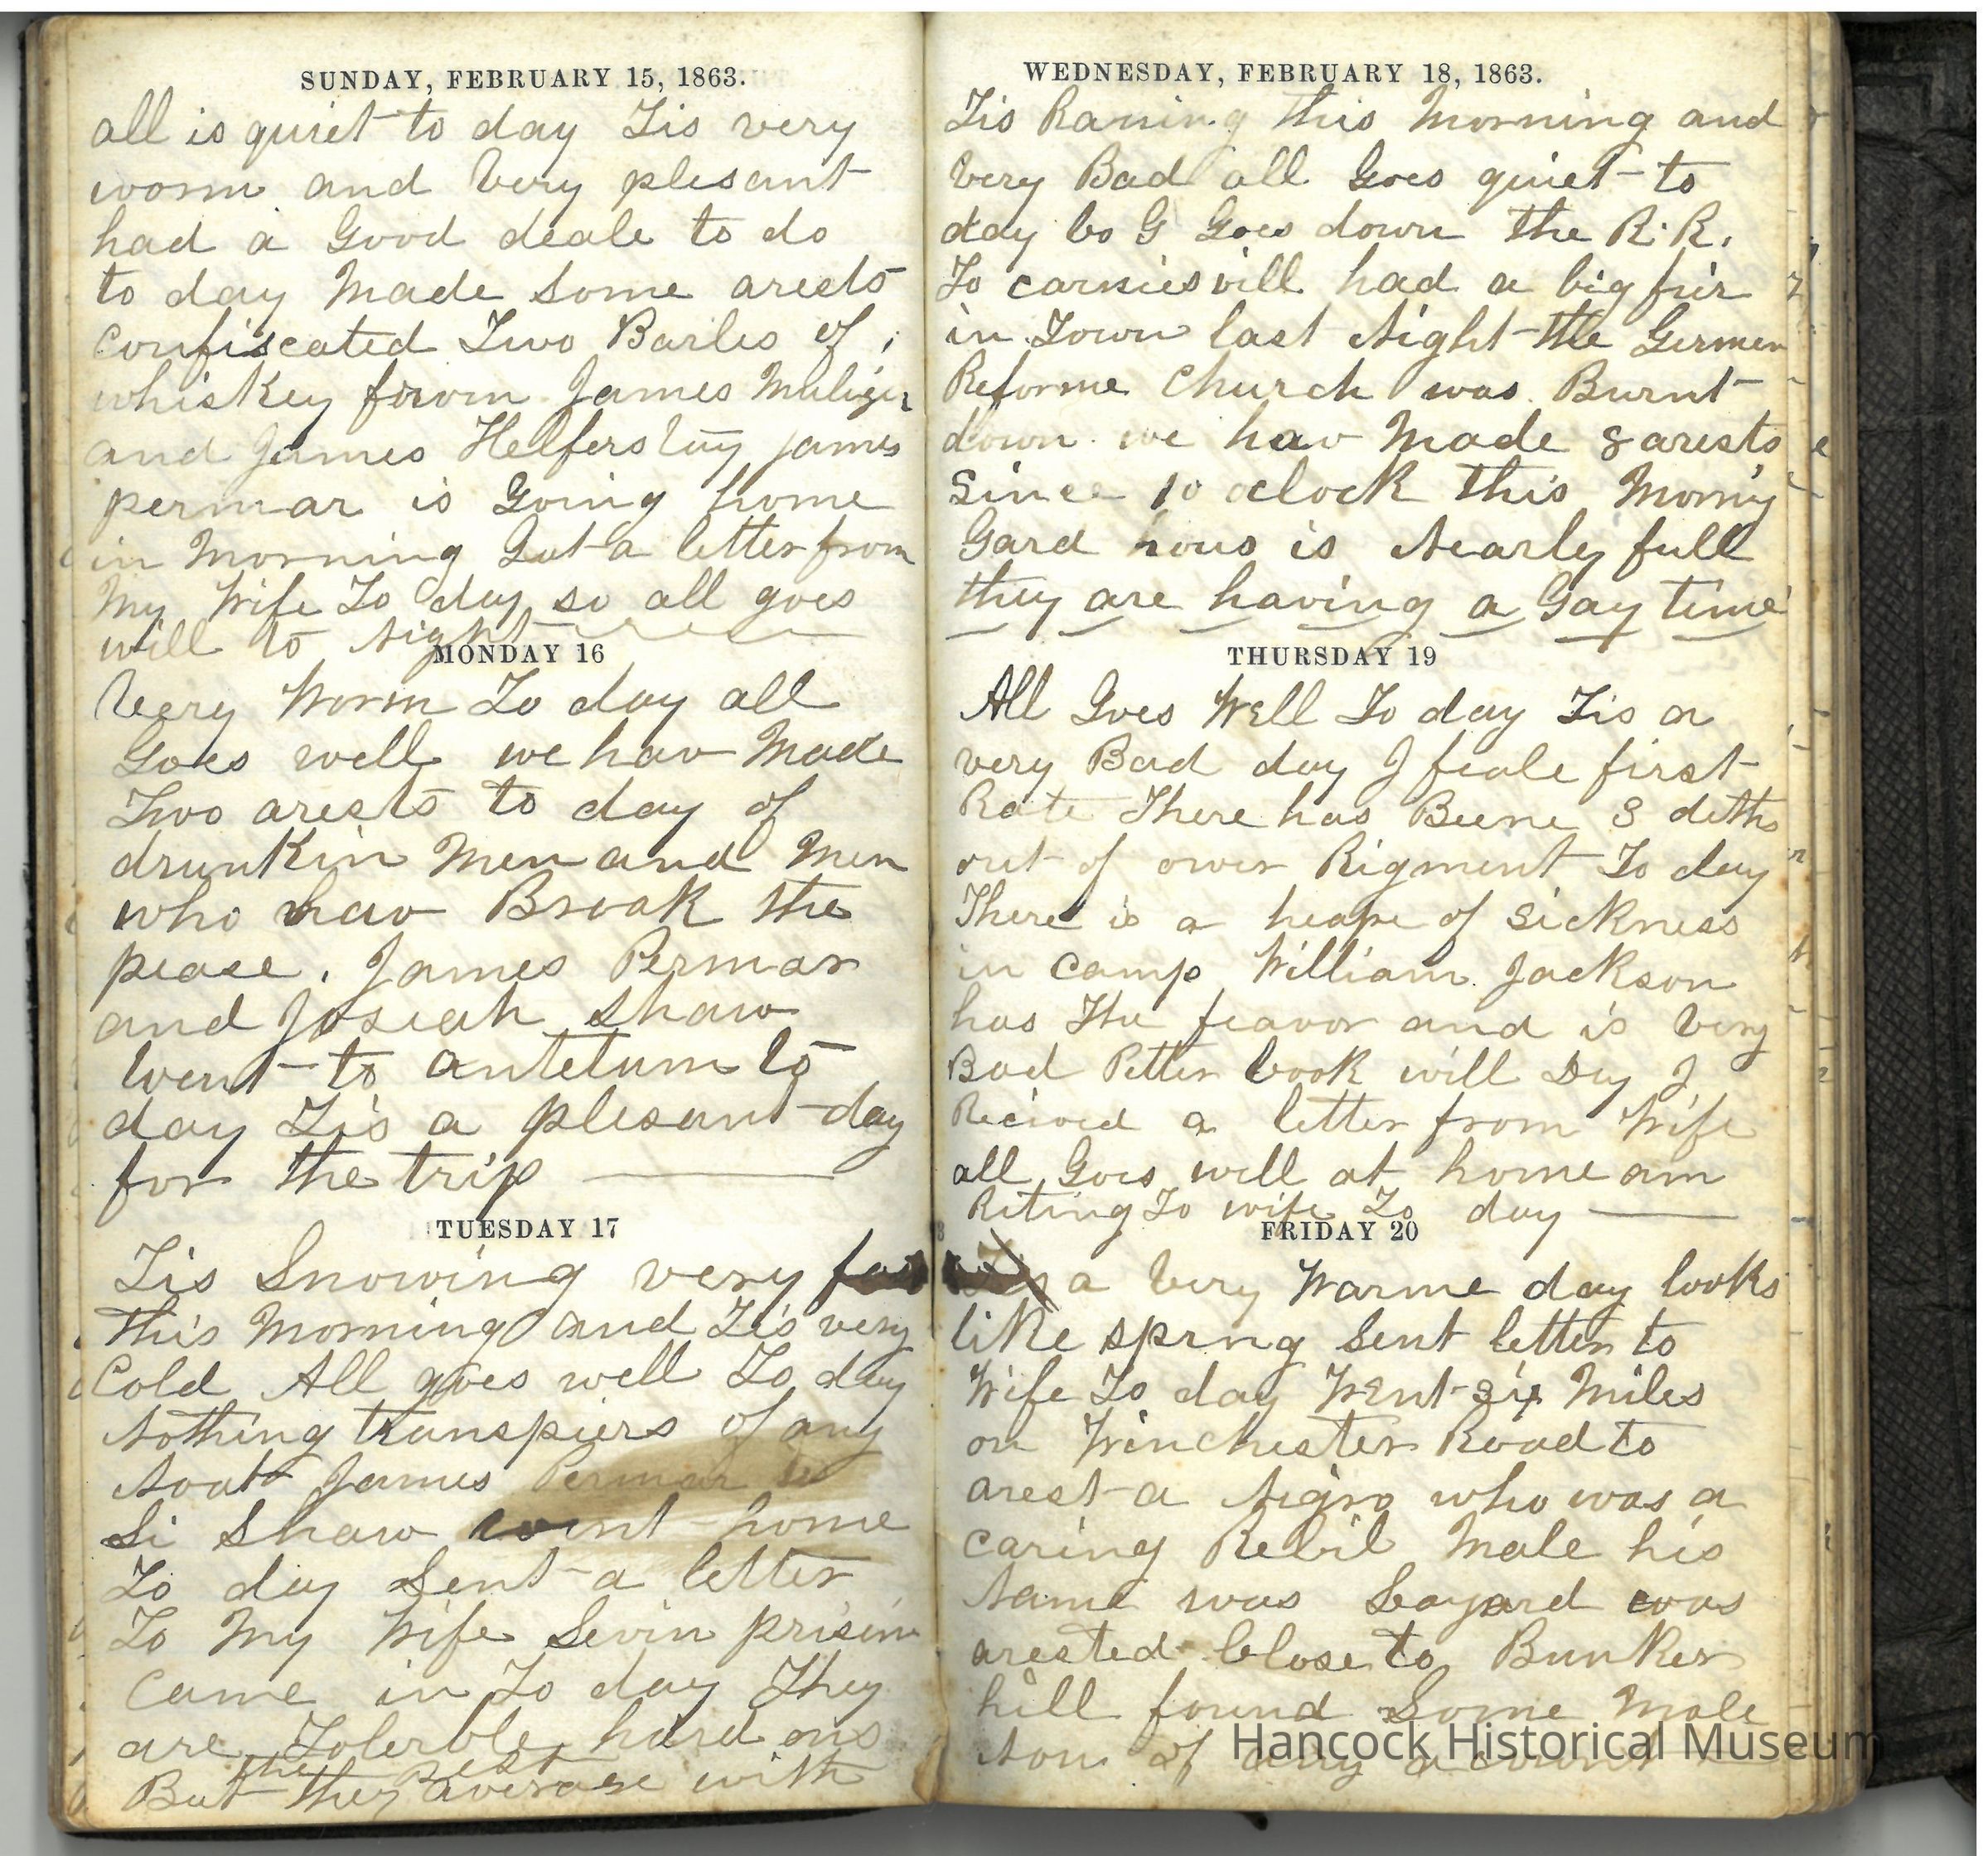 SUNDAY, FEBRUARY 15, 1863.
all is quiet to day Tis very
worm and very plesant
had a Good deale to do
to day Made some arests
confiscated Two Barles of
whiskey from James
and James james
permar is Going home
in Morning Got a letter from
My Wife To day so all goes
will to Night
MONDAY 16
Very Worm To day all
Goes well we hav Made
Two arests to day of
drunkin Men and Men
who hav Broak the
peace. James Permar
and Josiah Shaw
Went to antetum to
day Tis a plesant day
for the trip
TUESDAY 17
Tis Snowing very
this Morning and Tis very
Cold All goes well To day
Nothing transpiers of any
Noat James Permar
Si Shaw went home
To day Sent a letter
To My Wife Sevin
Came in To day They
are Tolerble hard ons
But they average with
the rest
WEDNESDAY, FEBRUARY 18, 1863.
Tis Raning this Morning and
Very Bad all Goes quiet to
day Co G Goes down the R. R.
To had a big fier
in Town last Night the German
Reforme Church was Burnt
down we hav Made 8 arests
Since 10 oclock this Morning
Gard hous is Nearly full
they are having a Gay time
THURSDAY 19
All Goes Well To day Tis a
very Bad day I feale first
Rate There has Beene 3 deths
out of ower Rigment To day
There is a heape of Sickness
in camp William Jackson
has The feavor and is Very
Bad Petter Cook will Dey I
Recived a letter from Wife
all Goes will at home am
Riting To wife To day
FRIDAY 20
a Very Warme day looks
like spring Sent letter to
Wife To day Went six Miles
on Winchester Road to
arest a Nigro who was a
caring Rebil Male his
Name was was
arested Close to Bunker
hill found Some Male
Non of any acount
Hancock Historical Museum